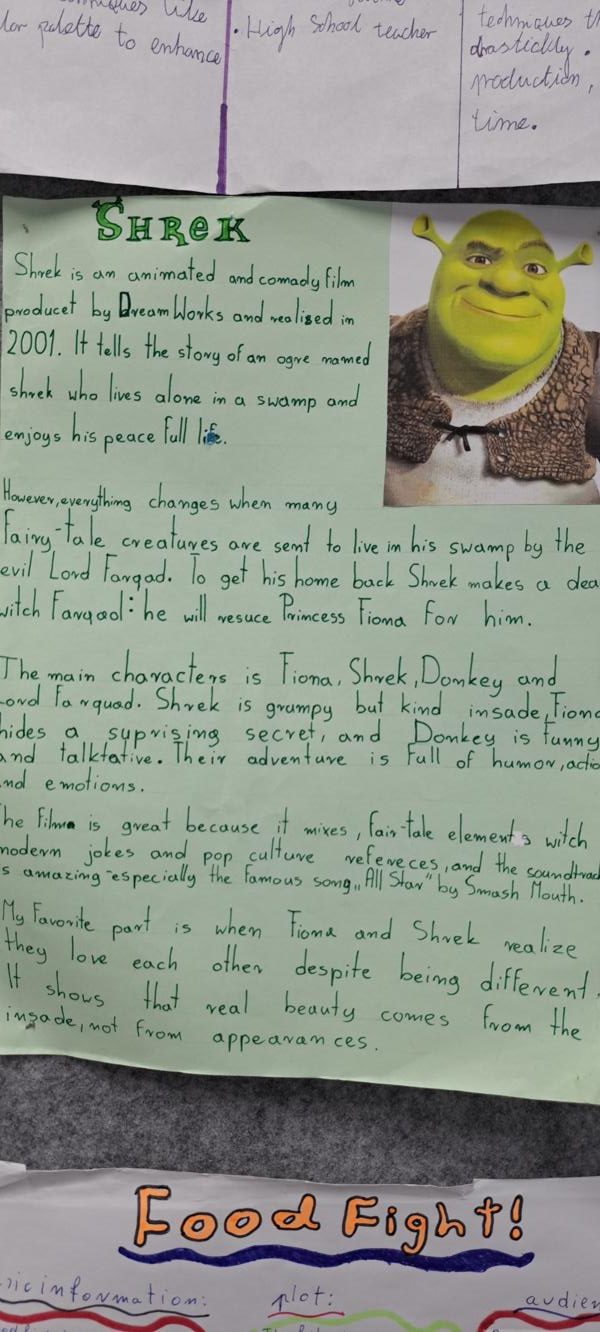 techniques like
palette to enhance
• High School teacher
techniques
drastickly.
production,
time.
SHReK
Shrek is an animated and comady film
producet by DreamWorks and realised in
2001. It tells the story of an ogre named
shrek who lives alone in a swamp and
enjoys his peace full life.
However, everything changes when many
fairy-tale creatures are sent to live in his swamp by the
evil Lord Farqad. To get his home back Shrek makes a dea
witch Farqaol: he will resuce Princess Fiona for him.
The main characters is Fiona, Shrek, Donkey and
Lord Farquad. Shrek is grumpy but kind insade, Fiona
hides a suprising secret, and Donkey is funny
and talktative. Their adventure is full of humor, actio
and emotions.
The film is great because it mixes, fair-tale elements witch
modern jokes and pop culture refereces, and the soundtrad
s amazing-especially the famous song „All Star" by Smash Mouth.
My Favorite part is when Fiona and Shrek realize
they love each other despite being different.
It shows that real beauty comes from the
insade, not from appearances.
Food Fight!
sic information:
plot:
audien